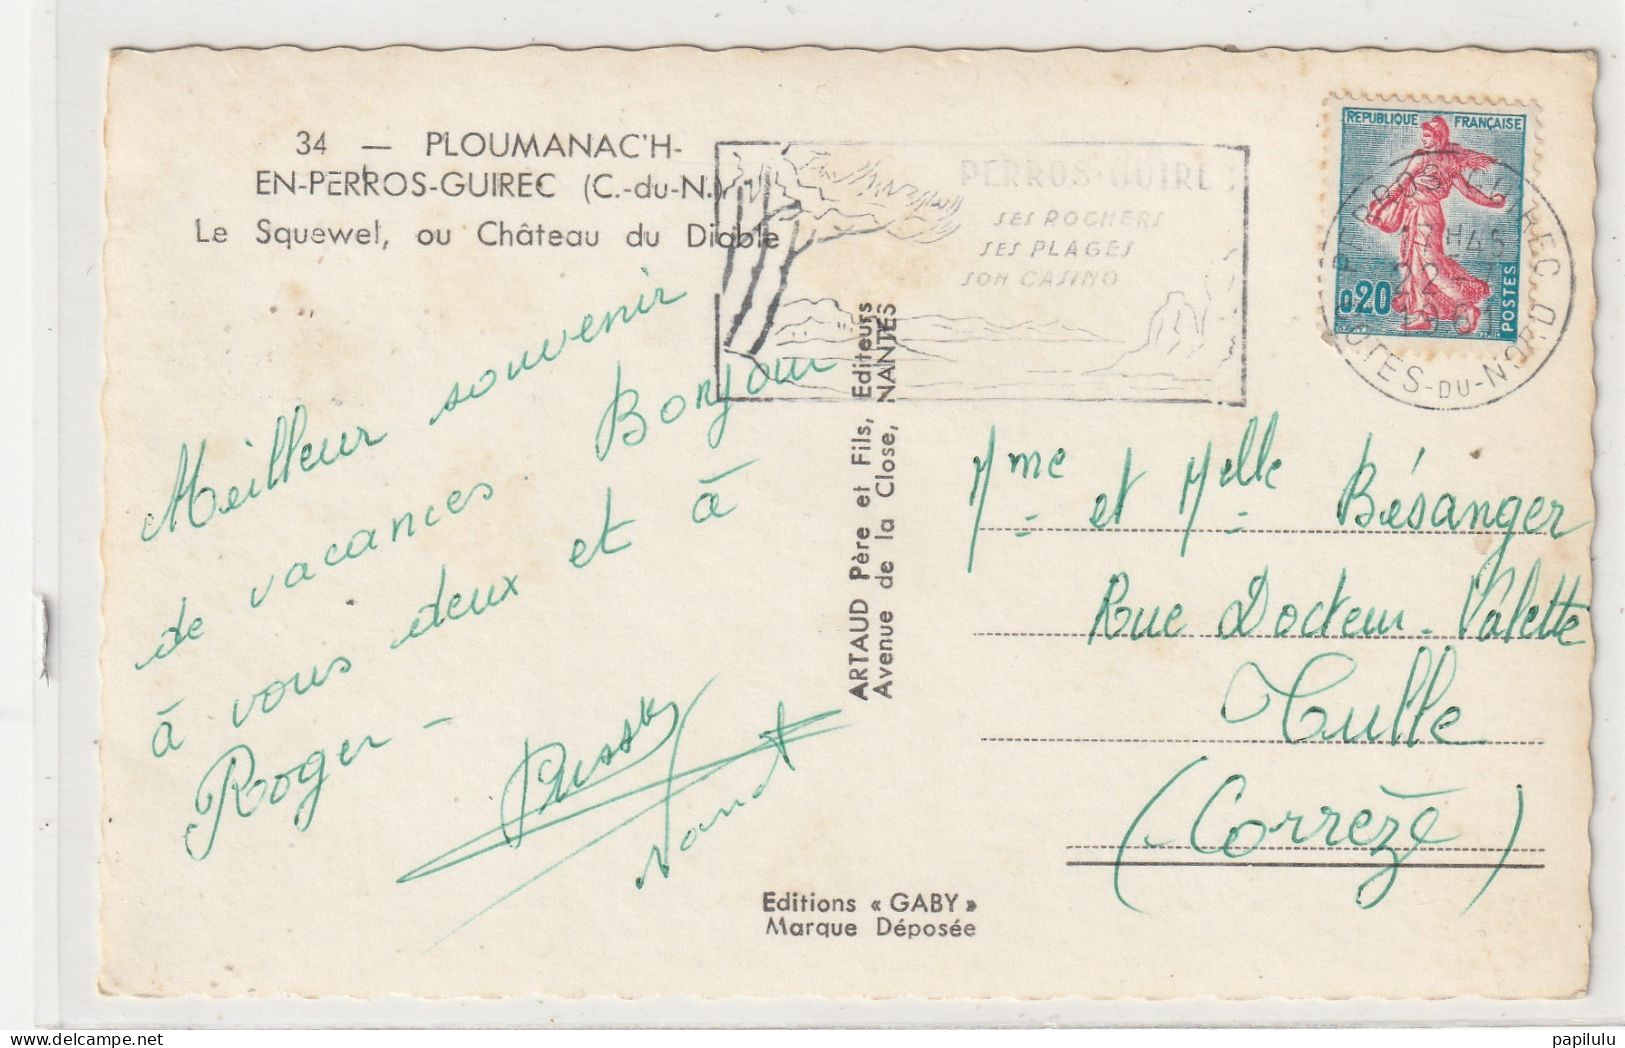 34 — PLOUMANAC'H-
EN-PERROS-GUIREC (C.-du-N.)
Le Squewel, ou Château du Diable
PERROS-GUIREC
SES ROCHERS
SES PLAGES
SON CASINO
REPUBLIQUE FRANÇAISE
0,20
POSTES
PERROS-GUIREC
17H45
22
COTES-DU-NORD
Meilleur souvenir
de vacances Bonjour
à vous deux et à
Roger -
ARTAUD Père et Fils, Editeurs
Avenue de la Close, NANTES
Mme et Melle Bésanger
Rue Docteur-Valette
Tulle
(Corrèze)
Editions « GABY »
Marque Déposée
papilulu